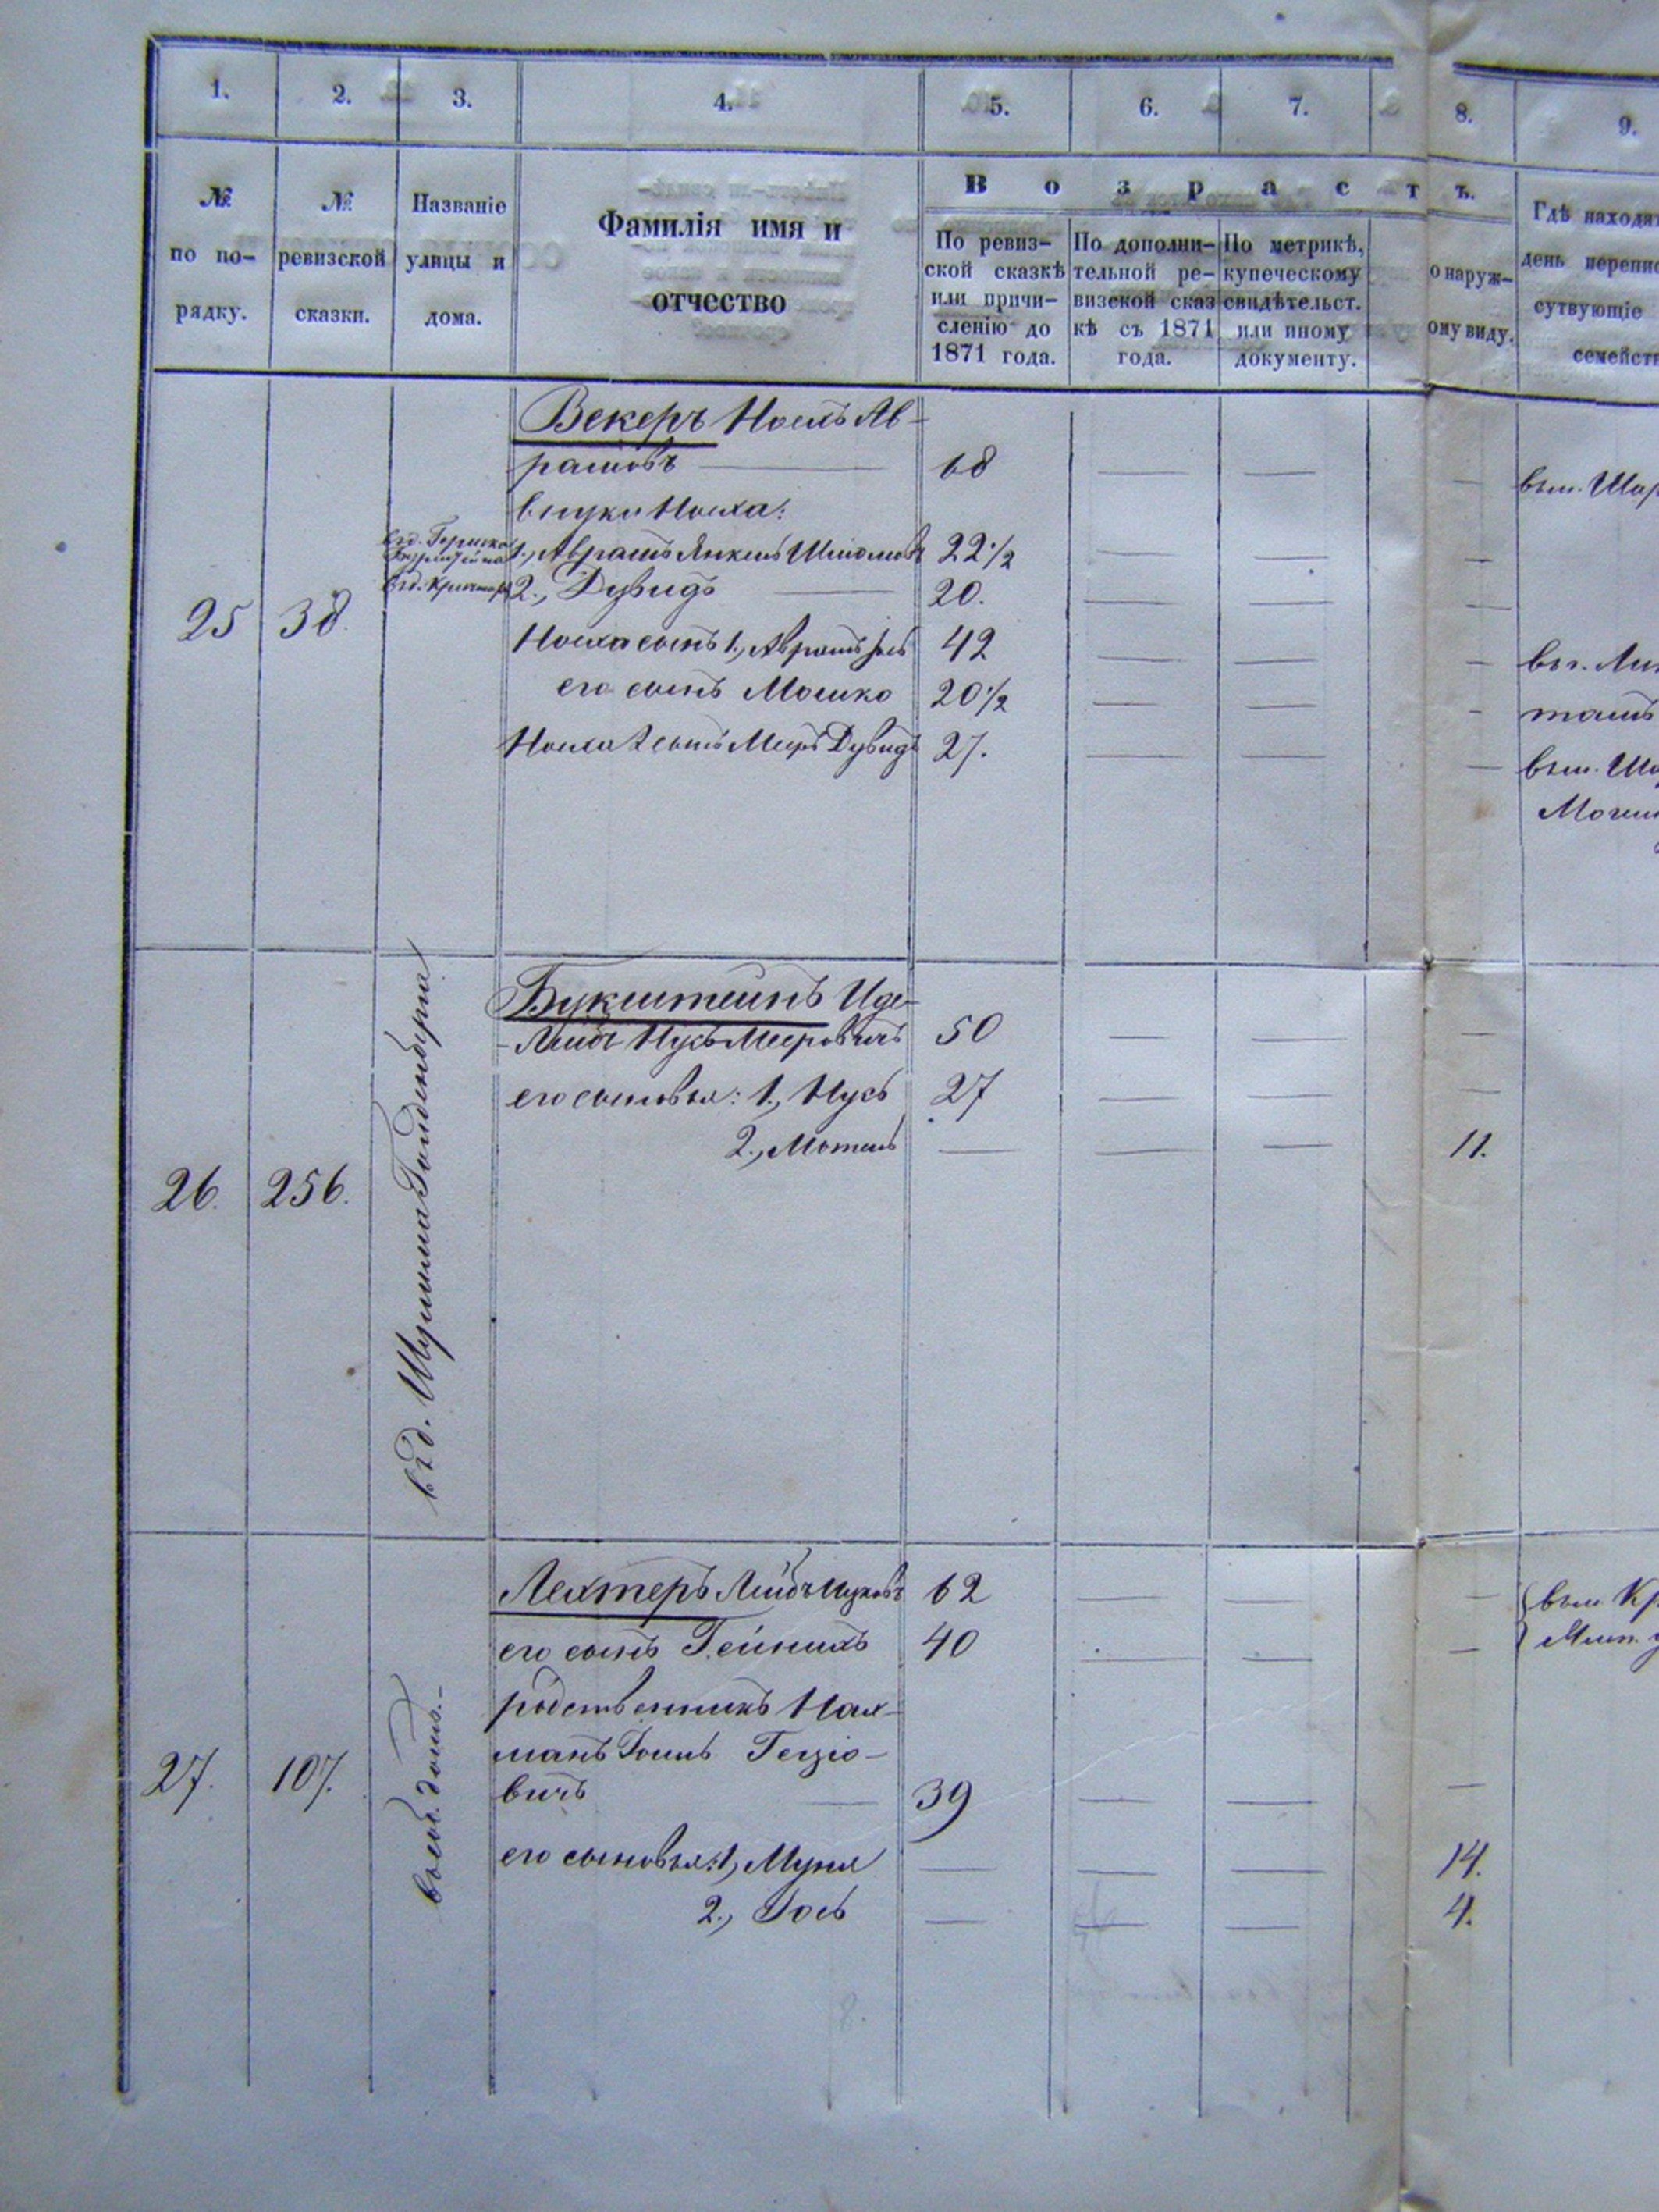 1. 2. 3. 4. 5. 6. 7. 8. 9.
№ по по-рядку.
№ ревизской сказки.
Названіе улицы и дома.
Фамилія имя и отчество
Возрастъ.
По ревиз-
ской сказкѣ
или причи-
сленію до
1871 года.
По дополни-
тельной ре-
визской сказ
кѣ съ 1871
года.
По метрикѣ,
купеческому
свидѣтельст.
или иному
документу.
о наруж-
ому виду.
Гдѣ находи
день перепис
сутвующіе
семейст
25 38
Векеръ Ноехъ Ав-
рамовъ — 68 — — —
внуки Ноеха:
1., Аврамъ Янкель Шмомовъ 22 1/2 — — —
2., Дувидъ — 20. — — —
Ноеха сынъ 1., Аврамъ 42 — — —
его сынъ Мошко 20 1/2 — — —
Ноеха 2 сынъ Меръ Дувидъ 27. — — —
26. 256.
въ д. Шулима Гольденберга
Букштейнъ Иде-
-Лейбъ Ицкъ Мееровичъ 50 — — —
его сыновья: 1., Ицкъ 27 — — —
2., Мотель — — — 11.
27. 107.
въ соб. домѣ.
Лехтеръ Лейбъ Ицковъ 62 — — —
его сынъ Гейнихъ 40 — — —
родственникъ Нах-
манъ Гецio-
вичъ — 39 — — —
его сыновья: 1., Муня — — — 14.
2., Іось — — — 4.